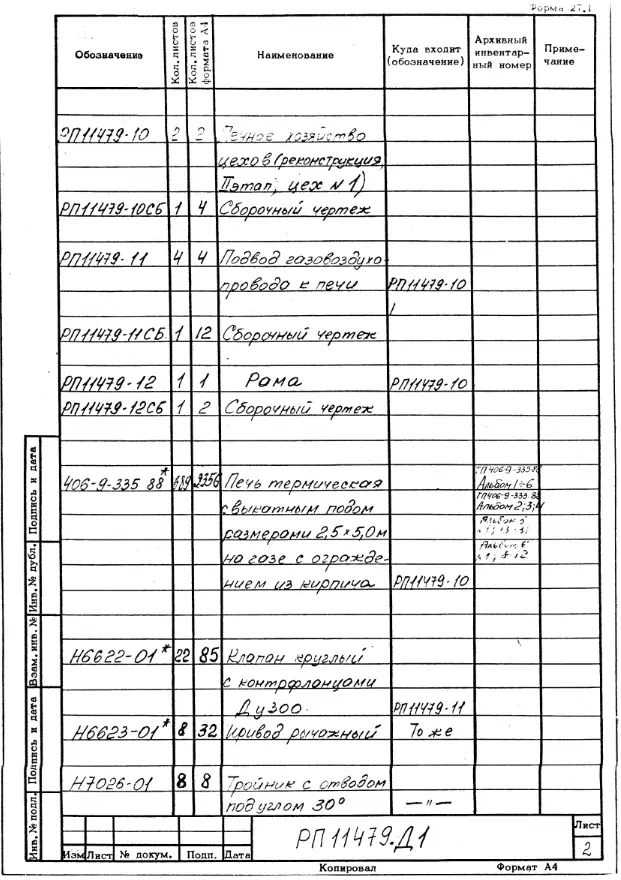 Форма 27.1
Обозначение Кол. листов Кол. листов формата А4 Наименование Куда входит (обозначение) Архивный инвентарный номер Примечание
РП11479-10 2 2 Печное хозяйство
цехов (реконструкция,
II этап, цех №1)
РП11479-10СБ 1 4 Сборочный чертеж
РП11479-11 4 4 Подвод газовоздухо-
провода к печи РП11479-10
РП11479-11СБ 1 12 Сборочный чертеж
РП11479-12 1 1 Рама РП11479-10
РП11479-12СБ 1 2 Сборочный чертеж
406-9-335 88* 589 3356 Печь термическая Альбом 1÷6
с выкатным подом Альбом 2;3;4
размерами 2,5×5,0м
на газе с огражде-
нием из кирпича РП11479-10
Н6622-01* 22 85 Клапан круглый
с контрфланцами
Ду300 РП11479-11
Н6623-01* 8 32 Привод рычажный То же
Н7026-01 8 8 Тройник с отводом
под углом 30° —"—
Инв.№ подл. Подпись и дата Взам. инв.№ Инв.№ дубл. Подпись и дата
РП 11479.Д1
Лист
2
Изм Лист № докум. Подп. Дата
Копировал Формат А4